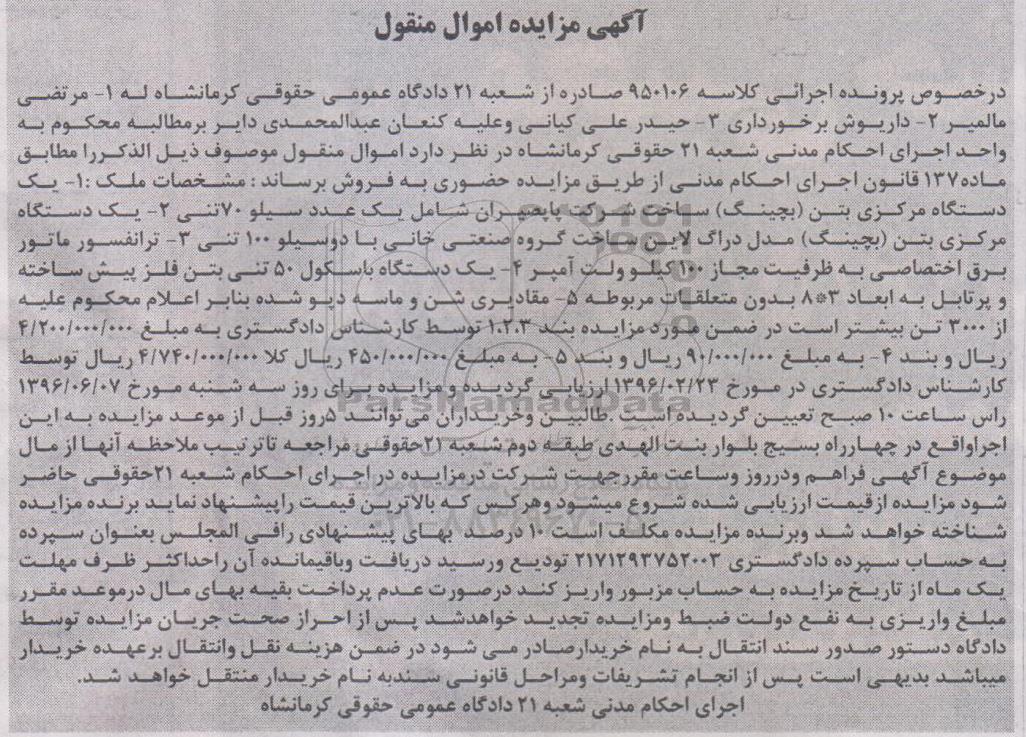 آگهی مزایده اموال منقول
درخصوص پرونده اجرائی کلاسه ۹۵۰۱۰۶ صادره از شعبه ۲۱ دادگاه عمومی حقوقی کرمانشاه له ۱- مرتضی
مالمیر ۲- داریوش برخورداری ۳- حیدر علی کیانی وعلیه کنعان عبدالمحمدی دایر برمطالبه محکوم به
واحد اجرای احکام مدنی شعبه ۲۱ حقوقی کرمانشاه در نظر دارد اموال منقول موصوف ذیل الذکررا مطابق
ماده۱۳۷ قانون اجرای احکام مدنی از طریق مزایده حضوری به فروش برساند : مشخصات ملک :۱- یک
دستگاه مرکزی بتن (بچینگ) ساخت شرکت پایمیران شامل یک عدد سیلو ۷۰تنی ۲- یک دستگاه
مرکزی بتن (بچینگ) مدل دراگ لاین ساخت گروه صنعتی خانی با دوسیلو ۱۰۰ تنی ۳- ترانفسور ماتور
برق اختصاصی به ظرفیت مجاز ۱۰۰ کیلو ولت آمپر ۴- یک دستگاه باسکول ۵۰ تنی بتن فلز پیش ساخته
و پرتابل به ابعاد ۳*۸ بدون متعلقات مربوطه ۵- مقادیری شن و ماسه دپو شده بنابر اعلام محکوم علیه
از ۳۰۰۰ تن بیشتر است در ضمن مورد مزایده بند ۱.۲.۳ توسط کارشناس دادگستری به مبلغ ۴/۲۰۰/۰۰۰/۰۰۰
ریال و بند ۴- به مبلغ ۹۰/۰۰۰/۰۰۰ ریال و بند ۵- به مبلغ ۴۵۰/۰۰۰/۰۰۰ ریال کلا ۴/۷۴۰/۰۰۰/۰۰۰ ریال توسط
کارشناس دادگستری در مورخ ۱۳۹۶/۰۲/۲۳ ارزیابی گردیده و مزایده برای روز سه شنبه مورخ ۱۳۹۶/۰۶/۰۷
راس ساعت ۱۰ صبح تعیین گردیده است. طالبین وخریداران می توانند ۵روز قبل از موعد مزایده به این
اجراواقع در چهارراه بسیج بلوار بنت الهدی طبقه دوم شعبه ۲۱حقوقی مراجعه تاترتیب ملاحظه آنها از مال
موضوع آگهی فراهم ودرروز وساعت مقررجهت شرکت درمزایده در اجرای احکام شعبه ۲۱حقوقی حاضر
شود مزایده ازقیمت ارزیابی شده شروع میشود وهرکس که بالاترین قیمت راپیشنهاد نماید برنده مزایده
شناخته خواهد شد وبرنده مزایده مکلف است ۱۰ درصد بهای پیشنهادی رافی المجلس بعنوان سپرده
به حساب سپرده دادگستری ۲۱۷۱۲۹۳۷۵۲۰۰۳ تودیع ورسید دریافت وباقیمانده آن راحداکثر ظرف مهلت
یک ماه از تاریخ مزایده به حساب مزبور واریز کند درصورت عدم پرداخت بقیه بهای مال درموعد مقرر
مبلغ واریزی به نفع دولت ضبط ومزایده تجدید خواهدشد پس از احراز صحت جریان مزایده توسط
دادگاه دستور صدور سند انتقال به نام خریدارصادر می شود در ضمن هزینه نقل وانتقال برعهده خریدار
میباشد بدیهی است پس از انجام تشریفات ومراحل قانونی سندبه نام خریدار منتقل خواهد شد.
اجرای احکام مدنی شعبه ۲۱ دادگاه عمومی حقوقی کرمانشاه
ParsNamadData